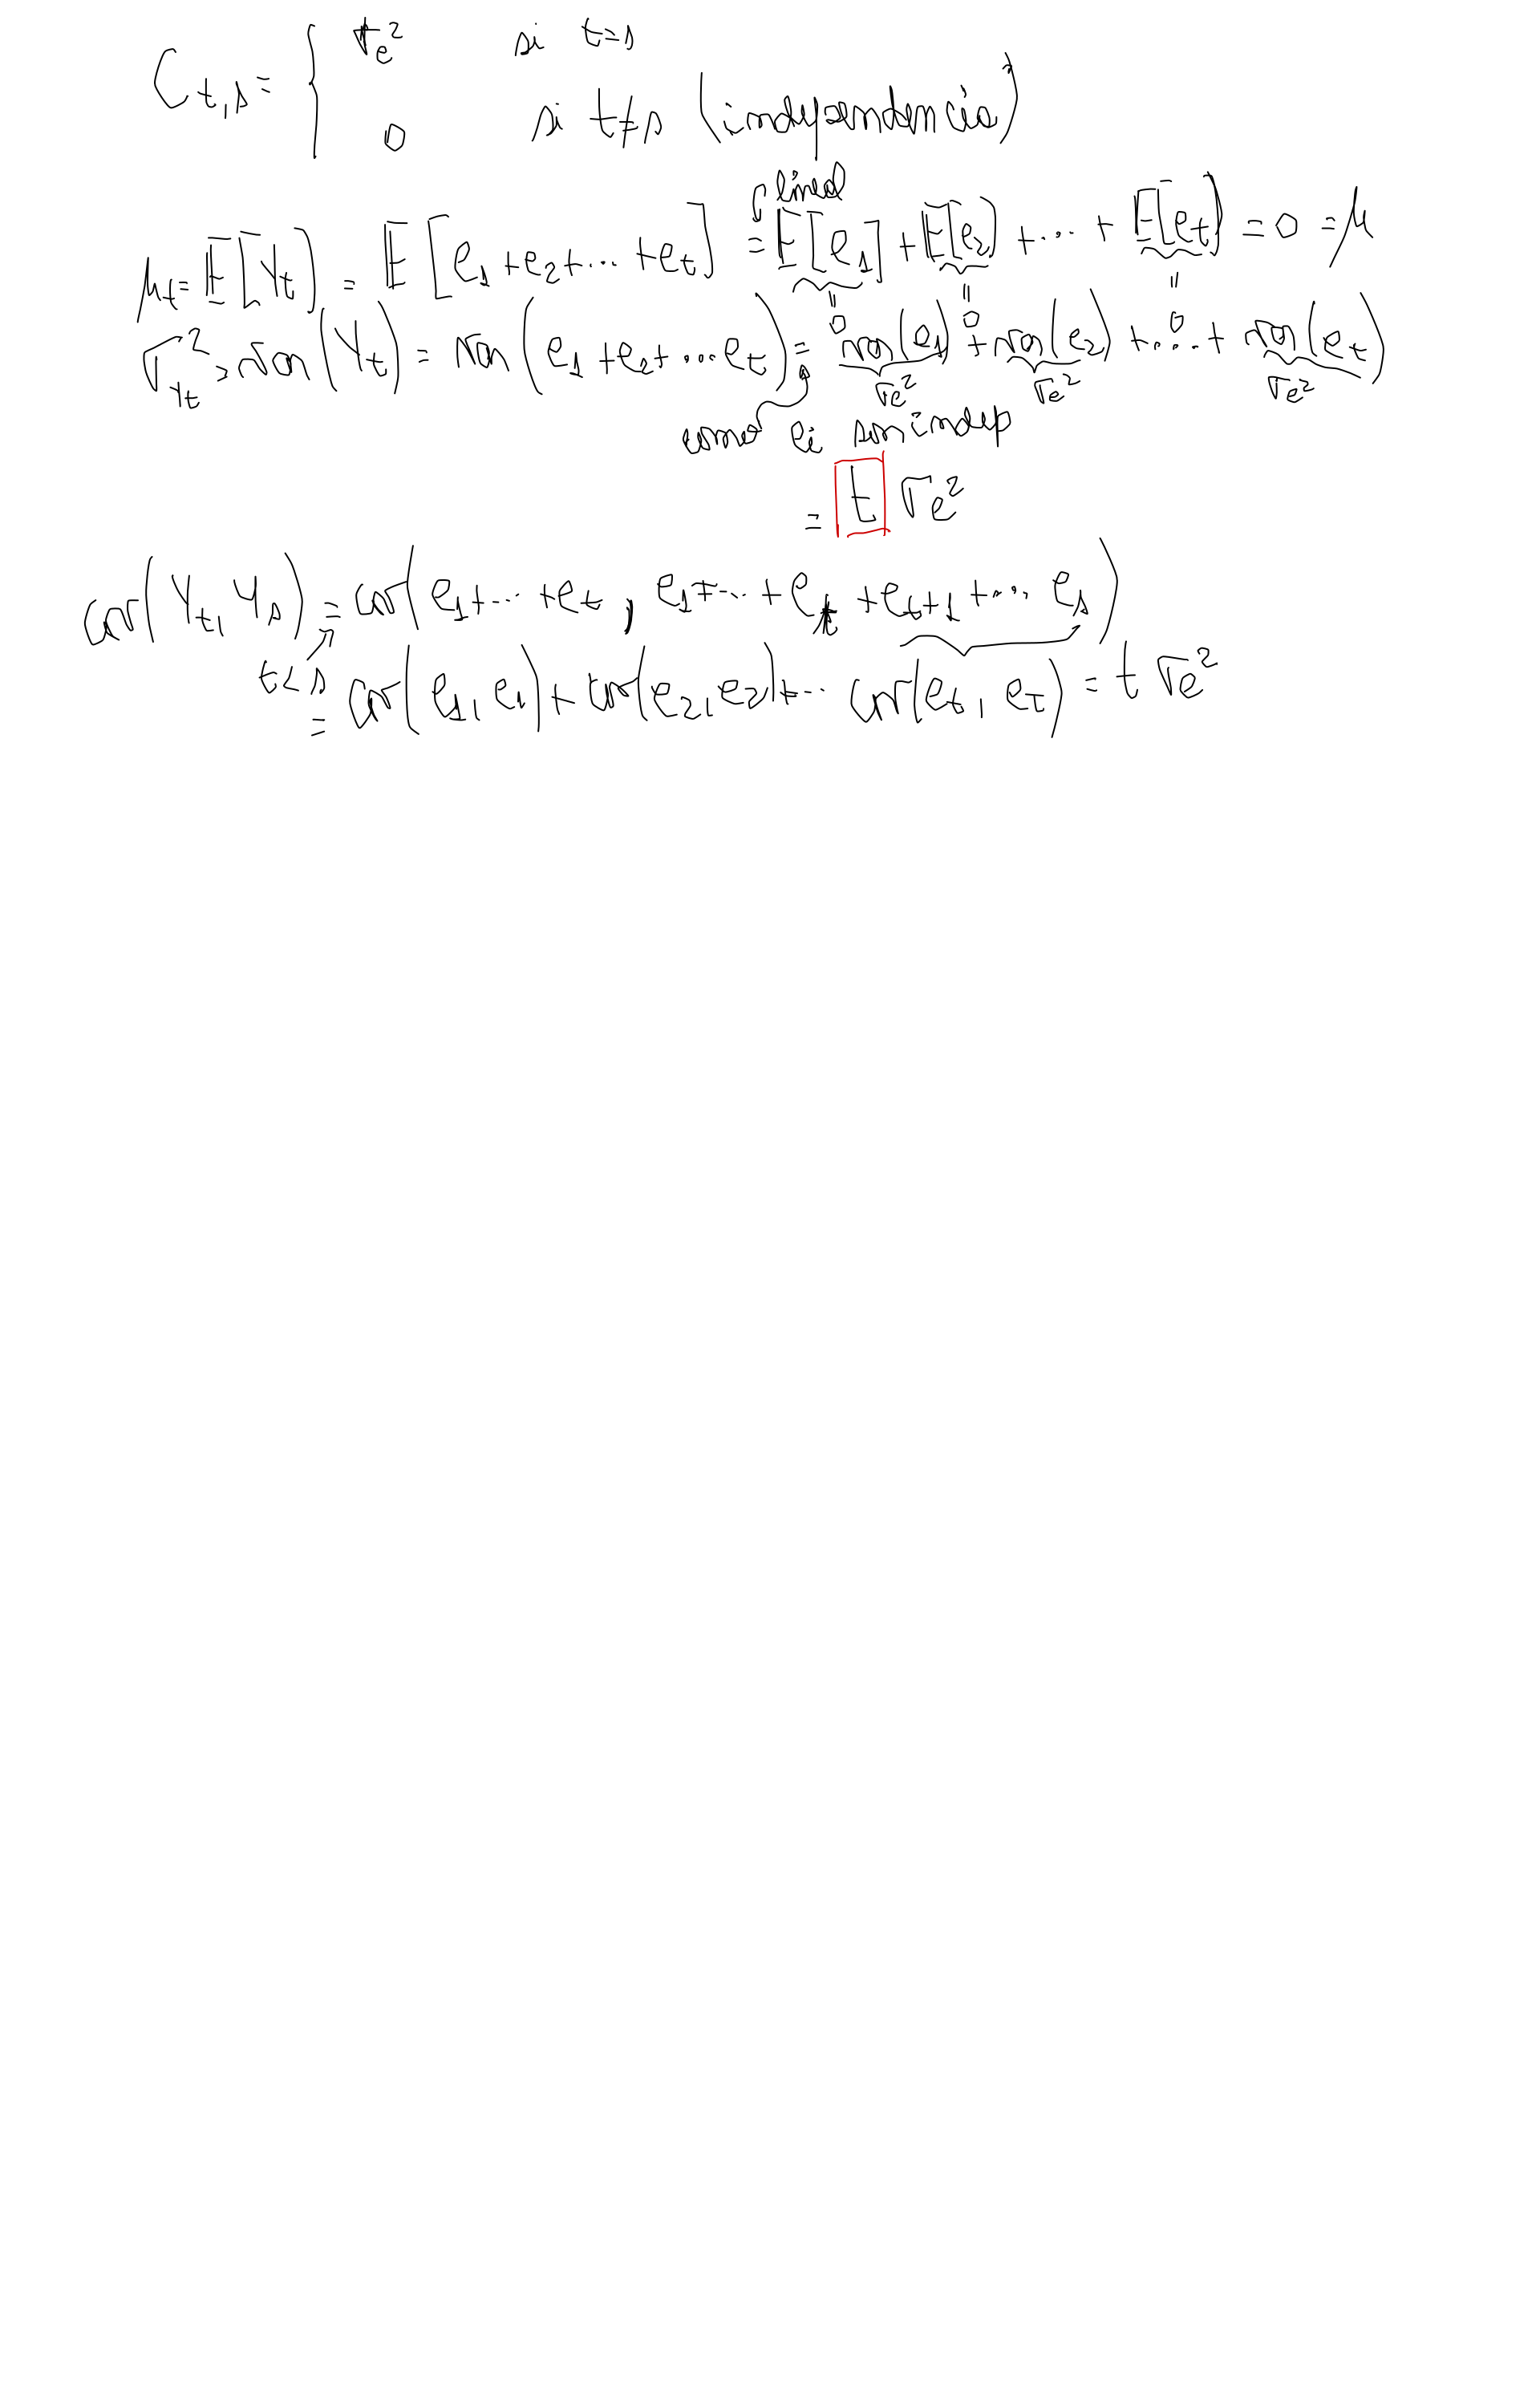 C_{t,s} = { σ_e² si t=s
0 si t≠s (independencia)
lineal
μ_t = E[Y_t] = E[e_1+e_2+...+e_t] = E[e_1] + E[e_2] + ... + E[e_t] = 0 = μ
= 0 = 0 = 0
σ_t² = var(Y_t) = var(e_1+e_2+...e_t) = var(e_1) + var(e_2) + ... + var(e_t)
σ_e² σ_e² σ_e²
como e_i son indep
= t σ_e²
cov(Y_t, Y_s) = cov(e_1+...+e_t, e_1+...+e_t+e_{t+1}+...e_s)
t<s
= cov(e_1, e_1) + cov(e_2, e_2) + ... cov(e_t, e_t) = t σ_e²